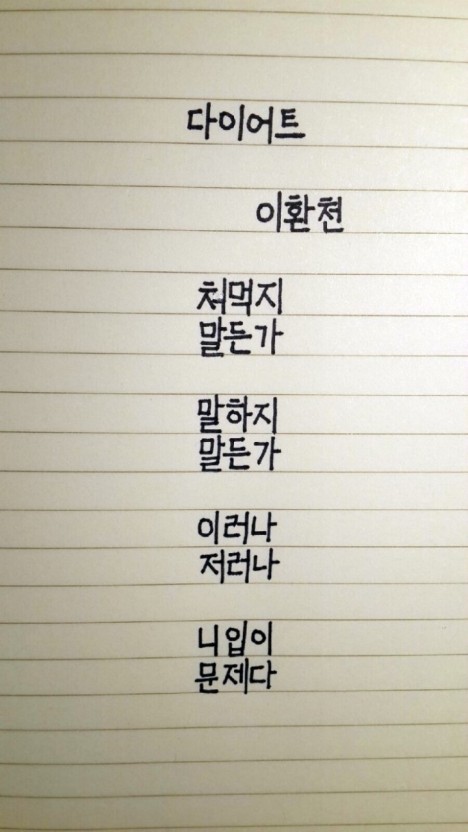 다이어트
이환천
처먹지
말든가
말하지
말든가
이러나
저러나
니입이
문제다